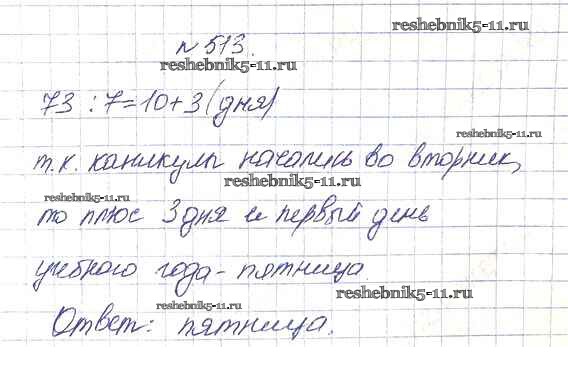 reshebnik5-11.ru
№ 513.
reshebnik5-11.ru
73 : 7 = 10 + 3 (дня)
reshebnik5-11.ru
т.к. каникулы начались во вторник,
reshebnik5-11.ru
reshebnik5-11.ru
то плюс 3 дня и первый день
учебного года - пятница.
reshebnik5-11.ru
reshebnik5-11.ru
Ответ: пятница.